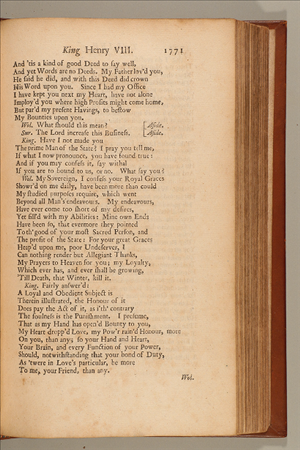 King Henry VIII. 1771
And 'tis a kind of good Deed to say well,
And yet Words are no Deeds. My Father lov'd you,
He said he did, and with this Deed did crown
His Word upon you. Since I had my Office
I have kept you next my Heart, have not alone
Imploy'd you where high Profits might come home,
But par'd my present Havings, to bestow
My Bounties upon you.
Wol. What should this mean? [Aside.
Sur. The Lord increase this Business. [Aside.
King. Have I not made you
The prime Man of the State? I pray you tell me,
If what I now pronounce, you have found true:
And if you may confess it, say withal
If you are bound to us, or no. What say you?
Wol. My Sovereign, I confess your Royal Graces
Showr'd on me daily, have been more than could
My studied purposes requite, which went
Beyond all Man's endeavours. My endeavours,
Have ever come too short of my desires,
Yet fill'd with my Abilities: Mine own Ends
Have been so, that evermore they pointed
To th' good of your most Sacred Person, and
The profit of the State: For your great Graces
Heap'd upon me, poor Undeserver, I
Can nothing render but Allegiant Thanks,
My Prayers to Heaven for you; my Loyalty,
Which ever has, and ever shall be growing,
'Till Death, that Winter, kill it.
King. Fairly answer'd:
A Loyal and Obedient Subject is
Therein illustrated, the Honour of it
Does pay the Act of it, as i'th' contrary
The foulness is the Punishment. I presume,
That as my Hand has open'd Bounty to you,
My Heart dropp'd Love, my Pow'r rain'd Honour, more
On you, than any; so your Hand and Heart,
Your Brain, and every Function of your Power,
Should, notwithstanding that your bond of Duty,
As 'twere in Love's particular, be more
To me, your Friend, than any.
Wol.